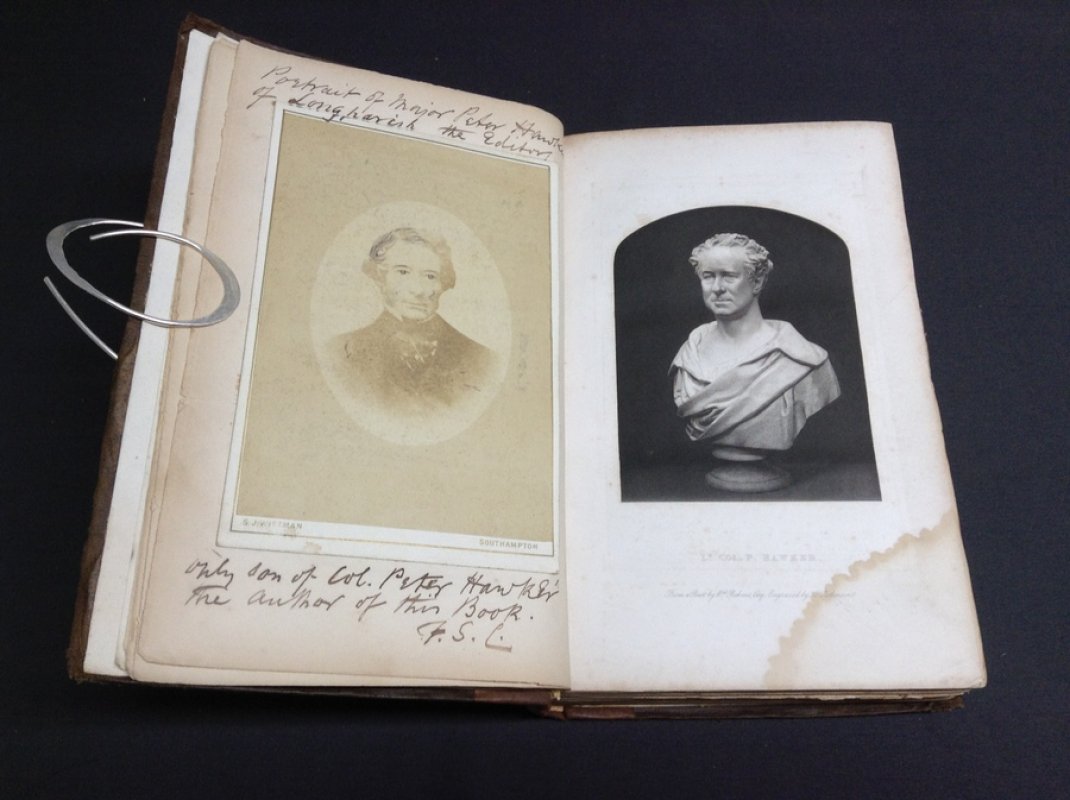 Portrait of Major Peter Hawke
of Longparish the Editor
S. J. WISEMAN
SOUTHAMPTON
only son of Col. Peter Hawker
The author of this Book.
F. S. C.
LT. COL. P. HAWKER.
From a Bust by Engraved by